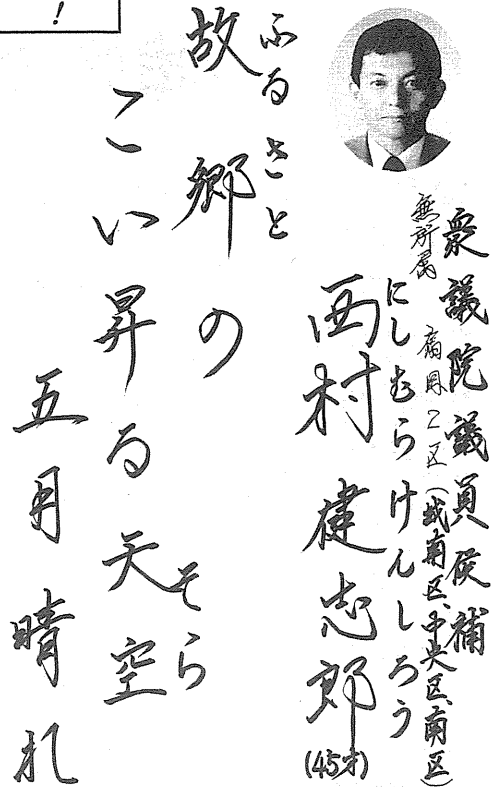 !
衆議院議員候補
無所属 福岡2区(城南区、中央区、南区)
にしむらけんしろう
西村健志郎(45才)
ふるさと
故郷の
こい昇る天空
そら
五月晴れ